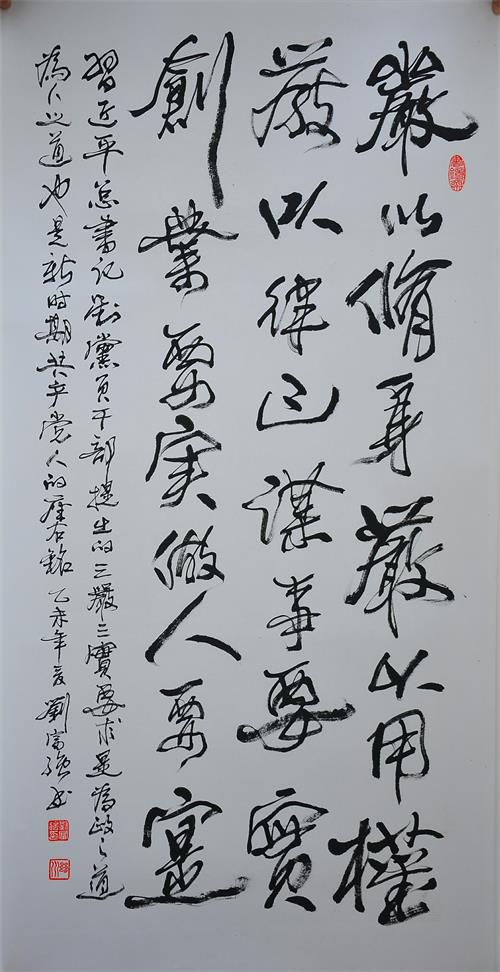 嚴以脩身嚴以用權
嚴以律己謀事要實
創業要实做人要寔
習近平总書记對黨員干部提出的三嚴三實要求是為政之道
為人之道也是新时期共产党人的座右銘 乙未年夏 劉富强书